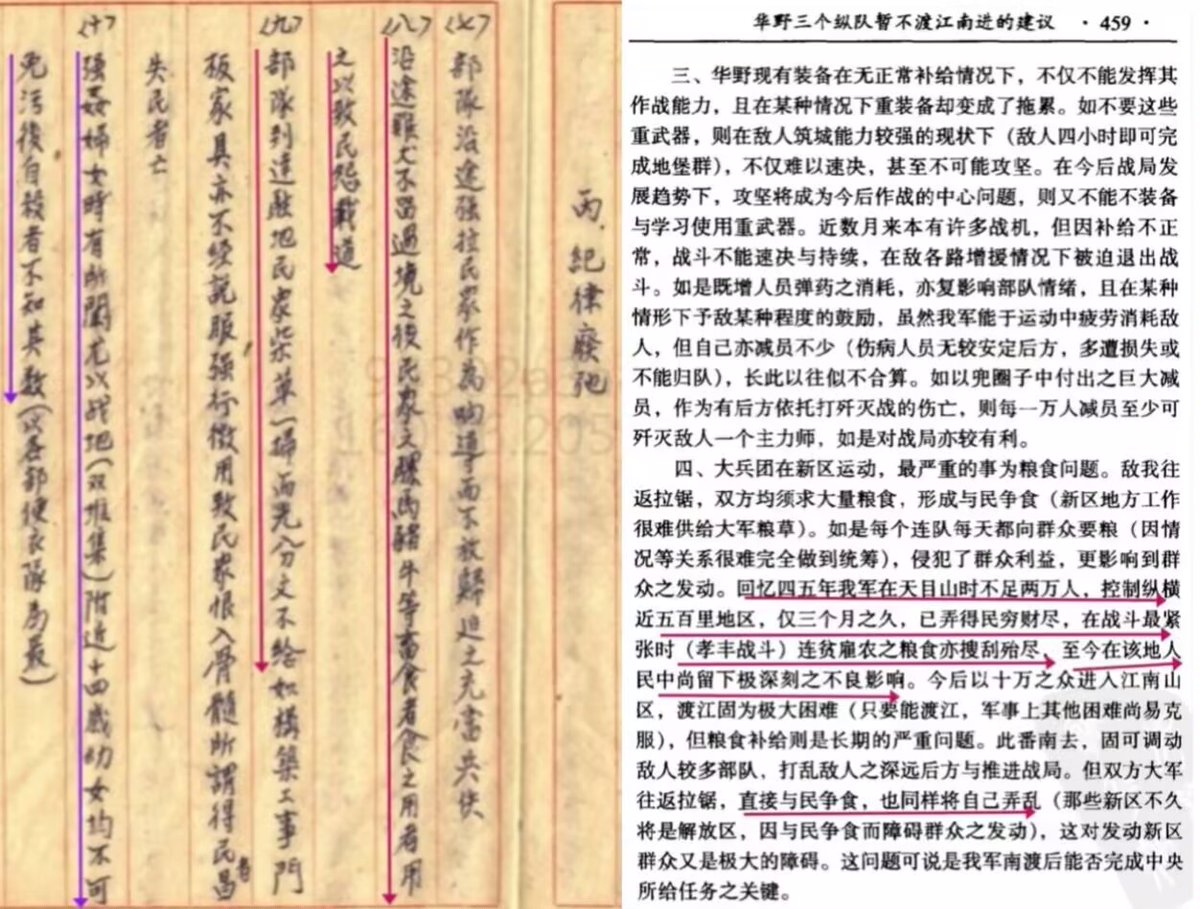 丙、紀律廢弛
(七) 部隊沿途强拉民家作為响導而不放歸迫之充當兵伕
(八) 沿途雞犬不留過境之後民家之騾馬豬牛等畜食者食之用者用
之以致民怨載道
(九) 部隊到達駐地民家柴草一掃而光分文不給如構築工事門
板家具亦不經說服强行徵用致民衆恨入骨髓所謂得民者昌
失民者亡
(十) 强姦婦女時有所聞尤以戰地(双堆集)附近十四歲幼女均不可
免污後自殺者不知其数(以各部便衣隊為最)
华野三个纵队暂不渡江南进的建议 · 459 ·
三、华野现有装备在无正常补给情况下，不仅不能发挥其
作战能力，且在某种情况下重装备却变成了拖累。如不要这些
重武器，则在敌人筑城能力较强的现状下（敌人四小时即可完
成地堡群），不仅难以速决，甚至不可能攻坚。在今后战局发
展趋势下，攻坚将成为今后作战的中心问题，则又不能不装备
与学习使用重武器。近数月来本有许多战机，但因补给不正
常，战斗不能速决与持续，在敌各路增援情况下被迫退出战
斗。如是既增人员弹药之消耗，亦复影响部队情绪，且在某种
情形下予敌某种程度的鼓励，虽然我军能于运动中疲劳消耗敌
人，但自己亦减员不少（伤病人员无较安定后方，多遭损失或
不能归队），长此以往似不合算。如以兜圈子中付出之巨大减
员，作为有后方依托打歼灭战的伤亡，则每一万人减员至少可
歼灭敌人一个主力师，如是对战局亦较有利。
四、大兵团在新区运动，最严重的事为粮食问题。敌我往
返拉锯，双方均须求大量粮食，形成与民争食（新区地方工作
很难供给大军粮草）。如是每个连队每天都向群众要粮（因情
况等关系很难完全做到统筹），侵犯了群众利益，更影响到群
众之发动。回忆四五年我军在天目山时不足两万人，控制纵横
近五百里地区，仅三个月之久，已弄得民穷财尽，在战斗最紧
张时（孝丰战斗）连贫雇农之粮食亦搜刮殆尽，至今在该地人
民中尚留下极深刻之不良影响。今后以十万之众进入江南山
区，渡江固为极大困难（只要能渡江，军事上其他困难尚易克
服），但粮食补给则是长期的严重问题。此番南去，固可调动
敌人较多部队，打乱敌人之深远后方与推进战局。但双方大军
往返拉锯，直接与民争食，也同样将自己弄乱（那些新区不久
将是解放区，因与民争食而障碍群众之发动），这对发动新区
群众又是极大的障碍。这问题可说是我军南渡后能否完成中央
所给任务之关键。